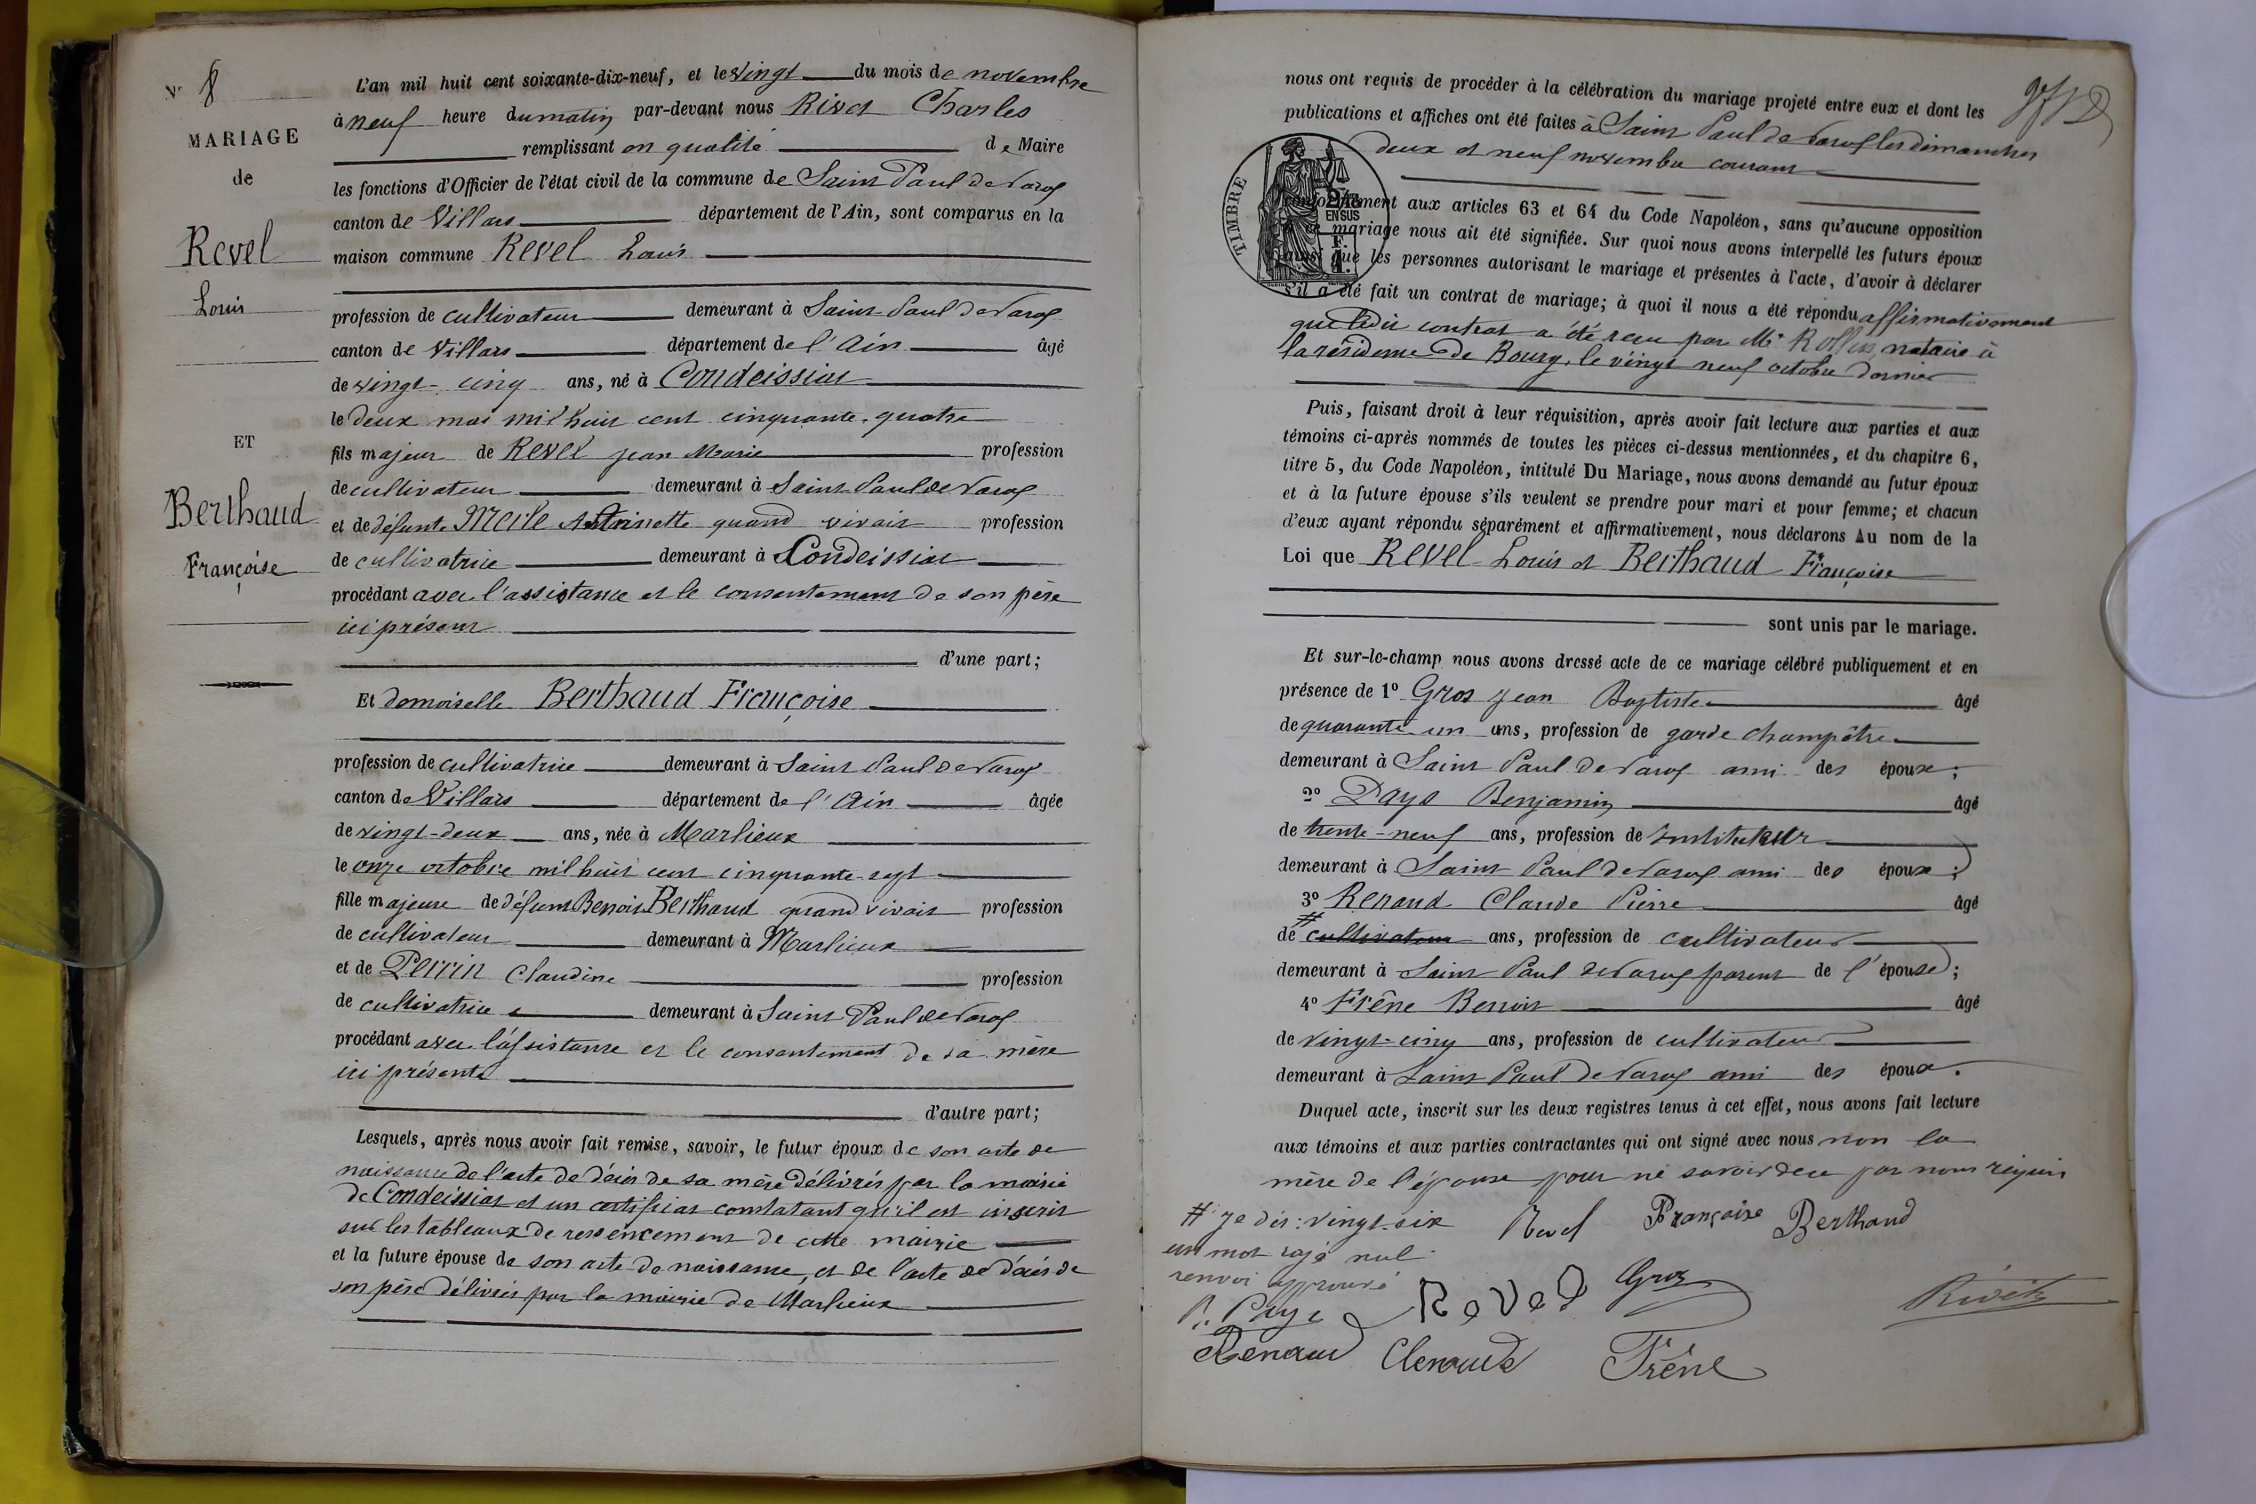 N° 8
MARIAGE
de
Revel
Louis
ET
Berthaud
Françoise
L'an mil huit cent soixante-dix-neuf, et le vingt du mois de novembre
à neuf heure du matin par-devant nous Rivet Charles
remplissant en qualité de Maire
les fonctions d'Officier de l'état civil de la commune de Saint Paul de Varax
canton de Villars département de l'Ain, sont comparus en la
maison commune Revel Louis
profession de cultivateur demeurant à Saint-Paul de Varax
canton de Villars département de l'Ain âgé
de vingt-cinq ans, né à Condeissiat
le deux mai mil huit cent cinquante-quatre
fils majeur de Revel Jean Marie profession
de cultivateur demeurant à Saint-Paul de Varax
et de défunte Merle Antoinette quand vivait profession
de cultivatrice demeurant à Condeissiat
procédant avec l'assistance et le consentement de son père
ici présent
d'une part;
Et demoiselle Berthaud Françoise
profession de cultivatrice demeurant à Saint Paul de Varax
canton de Villars département de l'Ain âgée
de vingt-deux ans, née à Marlieux
le onze octobre mil huit cent cinquante-sept
fille majeure de défunt Benoit Berthaud quand vivait profession
de cultivateur demeurant à Marlieux
et de Perrin Claudine profession
de cultivatrice demeurant à Saint Paul de Varax
procédant avec l'assistance et le consentement de sa mère
ici présente
d'autre part;
Lesquels, après nous avoir fait remise, savoir, le futur époux de son acte de
naissance de l'acte de décès de sa mère délivrés par la mairie
de Condeissiat et un certificat constatant qu'il est inscrit
sur les tableaux de recensement de cette mairie
et la future épouse de son acte de naissance, et de l'acte de décès de
son père délivrés par la mairie de Marlieux
nous ont requis de procéder à la célébration du mariage projeté entre eux et dont les
publications et affiches ont été faites à Saint Paul de Varax les dimanches
deux et neuf novembre courant
TIMBRE
2/10
EN SUS
F.
1.
conformément aux articles 63 et 64 du Code Napoléon, sans qu'aucune opposition
mariage nous ait été signifiée. Sur quoi nous avons interpellé les futurs époux
ainsi que les personnes autorisant le mariage et présentes à l'acte, d'avoir à déclarer
s'il a été fait un contrat de mariage; à quoi il nous a été répondu affirmativement
que ledit contrat a été reçu par Me Rollin, notaire à
la résidence de Bourg, le vingt neuf octobre dernier
Puis, faisant droit à leur réquisition, après avoir fait lecture aux parties et aux
témoins ci-après nommés de toutes les pièces ci-dessus mentionnées, et du chapitre 6,
titre 5, du Code Napoléon, intitulé Du Mariage, nous avons demandé au futur époux
et à la future épouse s'ils veulent se prendre pour mari et pour femme; et chacun
d'eux ayant répondu séparément et affirmativement, nous déclarons Au nom de la
Loi que Revel Louis et Berthaud Françoise
sont unis par le mariage.
Et sur-le-champ nous avons dressé acte de ce mariage célébré publiquement et en
présence de 1° Gros Jean Baptiste âgé
de quarante-un ans, profession de garde champêtre
demeurant à Saint Paul de Varax ami des époux;
2° Pays Benjamin âgé
de trente-neuf ans, profession de Instituteur
demeurant à Saint Paul de Varax ami des époux;
3° Renaud Claude Pierre âgé
#
de cultivateur ans, profession de cultivateur
demeurant à Saint Paul de Varax parent de l'épouse;
4° Frêne Benoit âgé
de vingt-cinq ans, profession de cultivateur
demeurant à Saint Paul de Varax ami des époux.
Duquel acte, inscrit sur les deux registres tenus à cet effet, nous avons fait lecture
aux témoins et aux parties contractantes qui ont signé avec nous non la
mère de l'épouse pour ne savoir de ce par nous requis
# je dis: vingt-six
un mot rayé nul
renvoi approuvé
Revel Françoise Berthaud
Revel Gros
Rivet
Renaud Claude Frêne